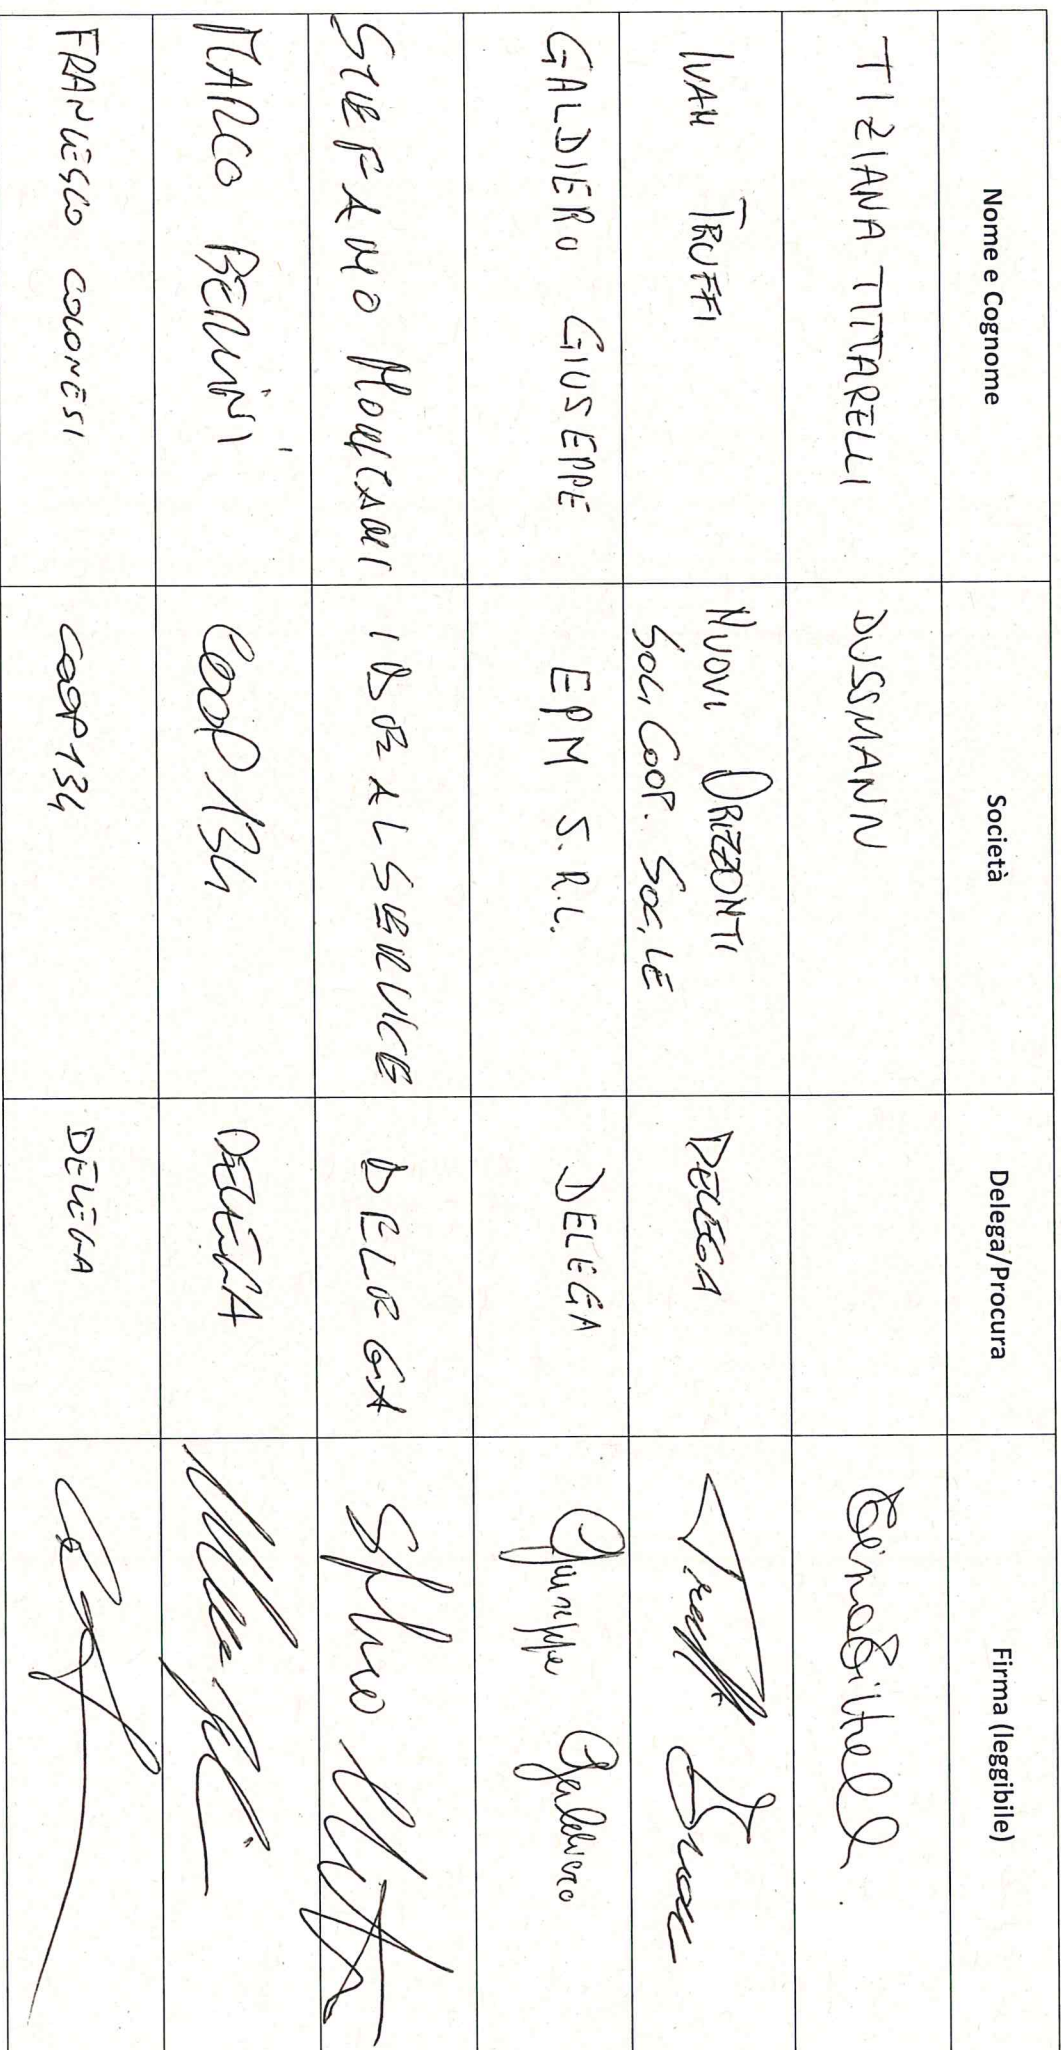 Nome e Cognome
Società
Delega/Procura
Firma (leggibile)
TIZIANA TITTARELLI
DUSSMANN
IVAN TRUFFI
NUOVI ORIZZONTI
SOC. COOP. SOC.LE
DELEGA
GALDIERO GIUSEPPE
EPM S.R.L.
DELEGA
Giuseppe Galdiero
STEFANO MONTANI
IDEALSERVICE
DELEGA
MARCO BERNINI
COOP134
DELEGA
FRANCESCO COLONESI
COOP134
DELEGA